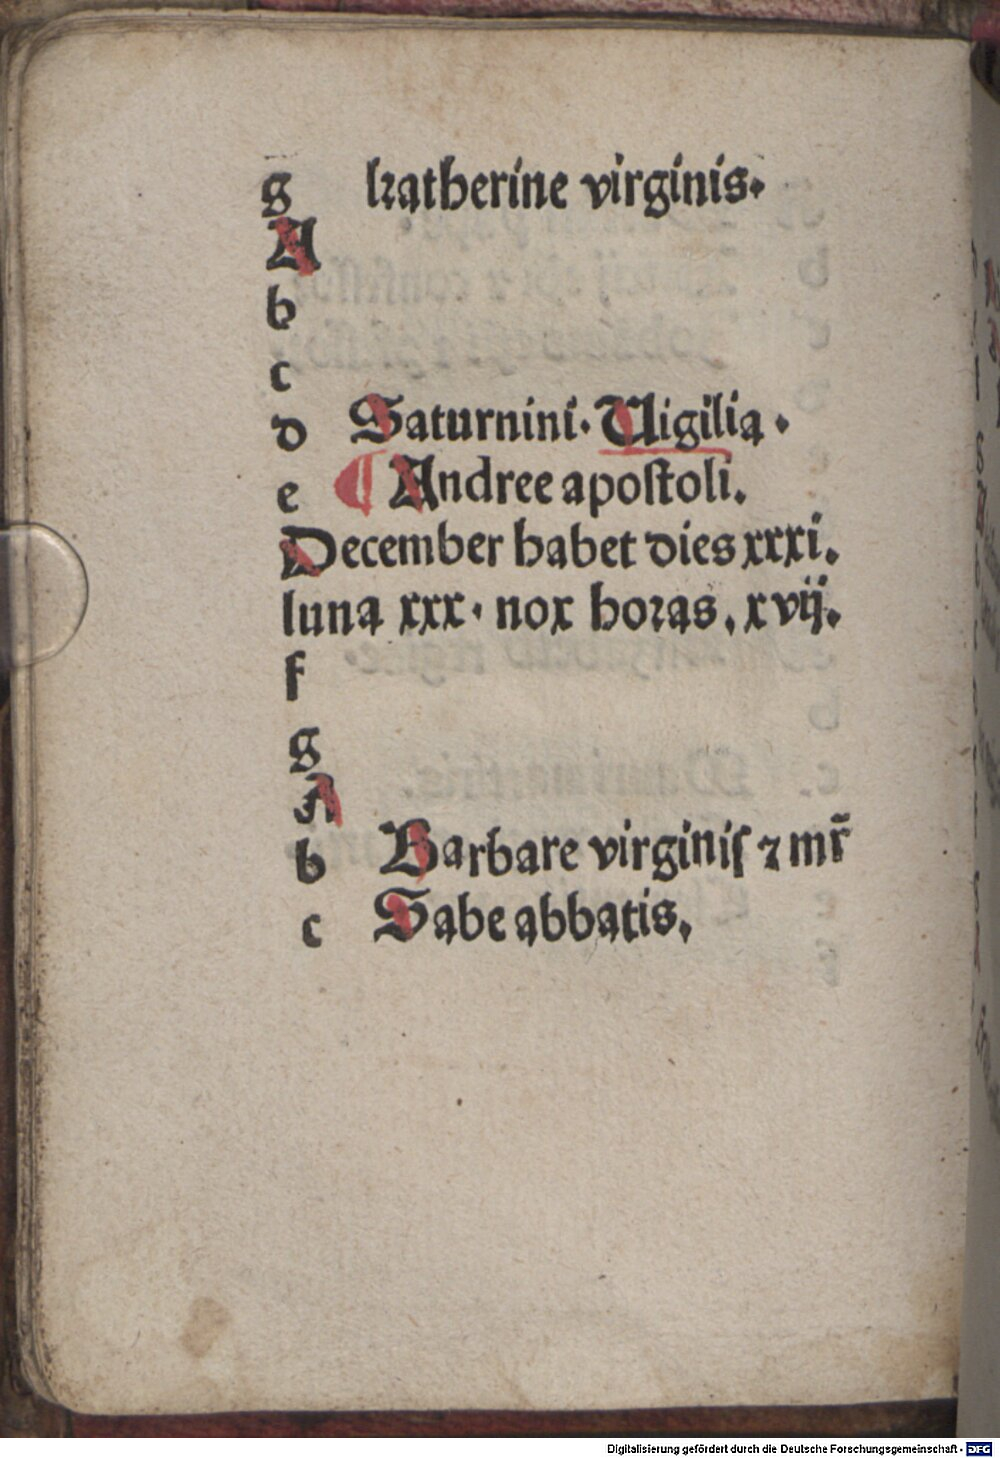 g katherine virginis.
A
b
c
d Saturnini. Uigilia.
e ¶ Andree apostoli.
December habet dies xxxi.
luna xxx. nox horas. xvij.
f
g
A
b Barbare virginis ⁊ mr̄
c Sabe abbatis.
Digitalisierung gefördert durch die Deutsche Forschungsgemeinschaft - DFG